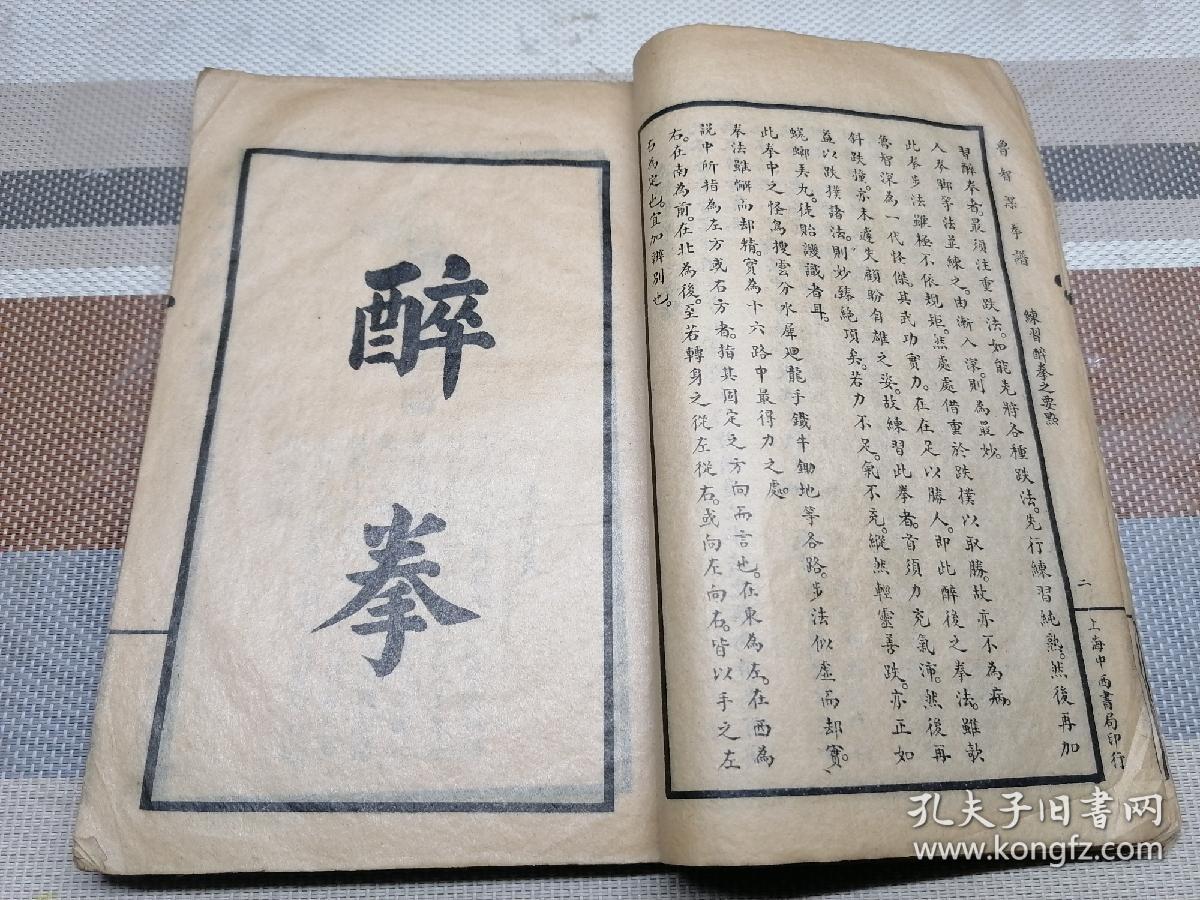 魯智深拳譜
練習醉拳之要點
二
上海中西書局印行
習醉拳者。最須注重跌法。如能先將各種跌法。先行練習純熟。然後再加
入拳脚等法並練之。由漸入深。則為最妙。
此拳步法雖極不依規矩。然處處借重於跌撲以取勝。故亦不為病。
魯智深為一代怪傑。其武功實力。在在足以勝人。即此醉後之拳法。雖欹
斜跌撞。亦未遽失顧盼自雄之姿。故練習此拳者。首須力充氣沛。然後再
益以跌撲諸法。則妙臻絕頂矣。若力不足。氣不充。縱然輕靈善跌。亦正如
蜣螂弄丸。徒貽譏識者耳。
此拳中之怪鳥搜雲分水犀迴龍手鐵牛鋤地等各路。步法似虛而却實、
拳法雖懈而却精。實為十六路中最得力之處。
說中所指為左方或右方者。指其固定之方向而言也。在東為左。在西為
右。在南為前。在北為後。至若轉身之從左從右。或向左向右。皆以手之左
右為定也。宜加辨別也。
醉拳
孔夫子旧书网
www.kongfz.com